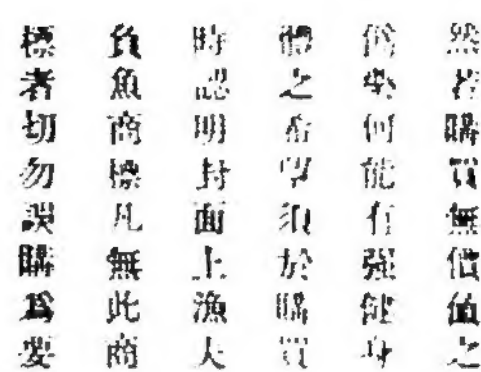 然若購買無價值之
僞藥何能有強健身
體之希望須於購買
時認明封面上漁夫
負魚商標凡無此商
標者切勿誤購爲要